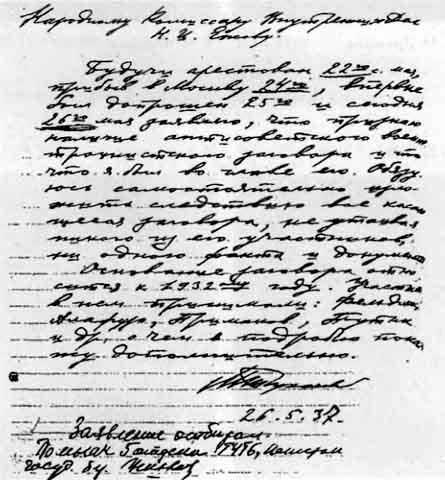 Народному Комиссару Внутренних Дел
Н. И. Ежову.
Будучи арестован 22го с. мая,
прибыв в Москву 24го, впервые
был допрошен 25го и сегодня
26го мая заявляю, что признаю
наличие антисоветского воен
троцкистского заговора и то
что я был во главе его. Обязу
юсь самостоятельно изло
жить следствию все касаю
щееся заговора, не утаивая
никого из его участников,
ни одного факта и документа
Основание заговора отно
сится к 1932му году. Участие
в нем принимали: Фельдман
Алафузо, Примаков, Путна
и др., о чем я подробно пока
жу дополнительно.
26.5.37.
Заявление отобрал
Пом. нач. 5 отдела ГУГБ, капитан
госуд. б. Ушаков